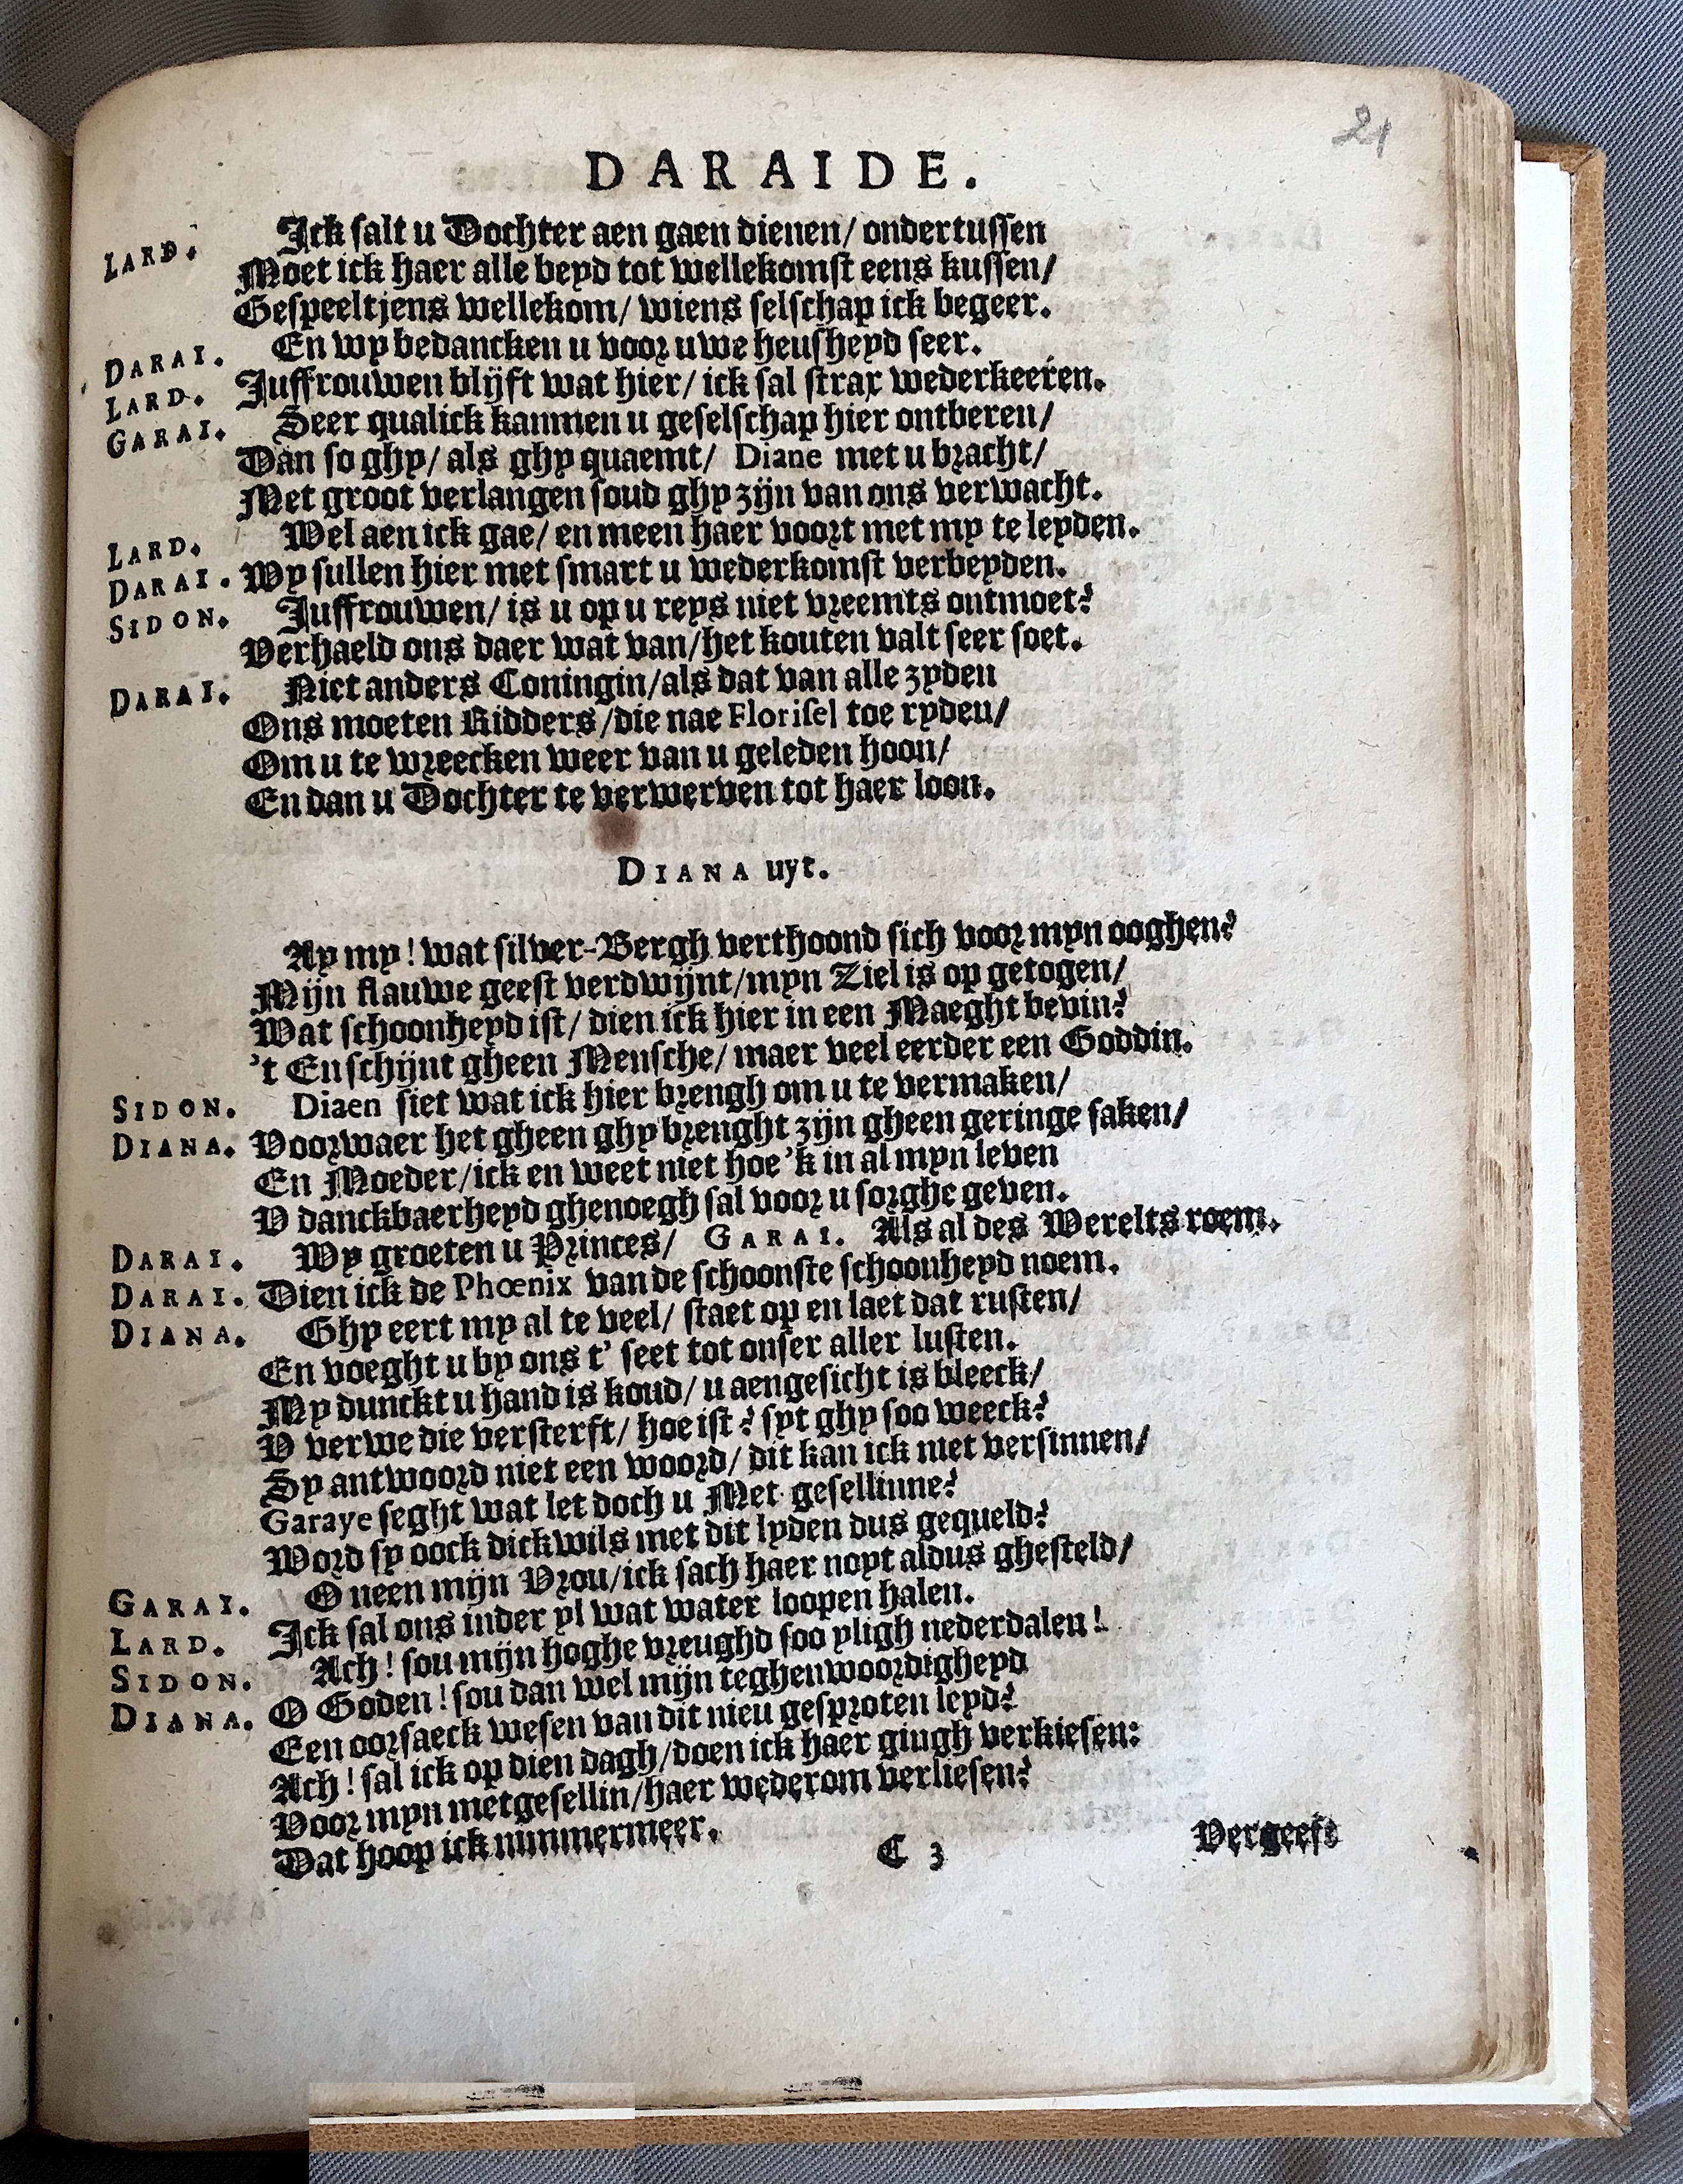 21
DARAIDE.
LARD. Ick salt u Dochter aen gaen dienen/ ondertussen
Moet ick haer alle beyd tot wellekomst eens kussen/
Gespeeltjens wellekom/ wiens selschap ick begeer.
DARAI. En wy bedancken u voor uwe heusheyd seer.
LARD. Juffrouwen blijft wat hier/ ick sal strax wederkeeren.
GARAI. Seer qualick kanmen u geselschap hier ontberen/
Dan so ghy/ als ghy quaemt/ Diane met u bracht/
Met groot verlangen soud ghy zijn van ons verwacht.
LARD. Wel aen ick gae/ en meen haer voort met my te leyden.
DARAI. Wy sullen hier met smart u wederkomst verbeyden.
SIDON. Juffrouwen/ is u op u reys niet vreemts ontmoet?
Verhaeld ons daer wat van/ het kouten valt seer soet.
DARAI. Niet anders Coningin/ als dat van alle zyden
Ons moeten Ridders/ die nae Florisel toe ryden/
Om u te wreecken weer van u geleden hoon/
En dan u Dochter te verwerven tot haer loon.
DIANA uyt.
Ay my! wat silver-Bergh verthoond sich voor myn ooghen?
Mijn flauwe geest verdwijnt/ myn Ziel is op getogen/
Wat schoonheyd ist/ dien ick hier in een Maeght bevin?
't En schijnt gheen Mensche/ maer veel eerder een Goddin.
SIDON. Diaen siet wat ick hier brengh om u te vermaken/
DIANA. Voorwaer het gheen ghy brenght zijn gheen geringe saken/
En Moeder/ ick en weet niet hoe 'k in al myn leven
V danckbaerheyd ghenoegh sal voor u sorghe geven.
DARAI. Wy groeten u Princes/ GARAI. Als al des Werelts roem.
DARAI. Dien ick de Phœnix van de schoonste schoonheyd noem.
DIANA. Ghy eert my al te veel/ staet op en laet dat rusten/
En voeght u by ons t' seet tot onser aller lusten.
My dunckt u hand is koud/ u aengesicht is bleeck/
V verwe die versterft/ hoe ist? syt ghy soo weeck?
Sy antwoord niet een woord/ dit kan ick niet versinnen/
Garaye seght wat let doch u Met-gesellinne?
Word sy oock dickwils met dit lyden dus gequeld?
GARAI. O neen mijn Vrou/ ick sach haer noyt aldus ghesteld/
LARD. Ick sal ons inder yl wat water loopen halen.
SIDON. Ach! sou mijn hoghe vreughd soo yligh nederdalen!
DIANA. O Goden! sou dan wel mijn teghenwoordigheyd
Een oorsaeck wesen van dit nieu gesproten leyd?
Ach! sal ick op dien dagh/ doen ick haer gingh verkiesen:
Voor myn metgesellin/ haer wederom verliesen?
Dat hoop ick nimmermeer.
C 3 Vergeeft